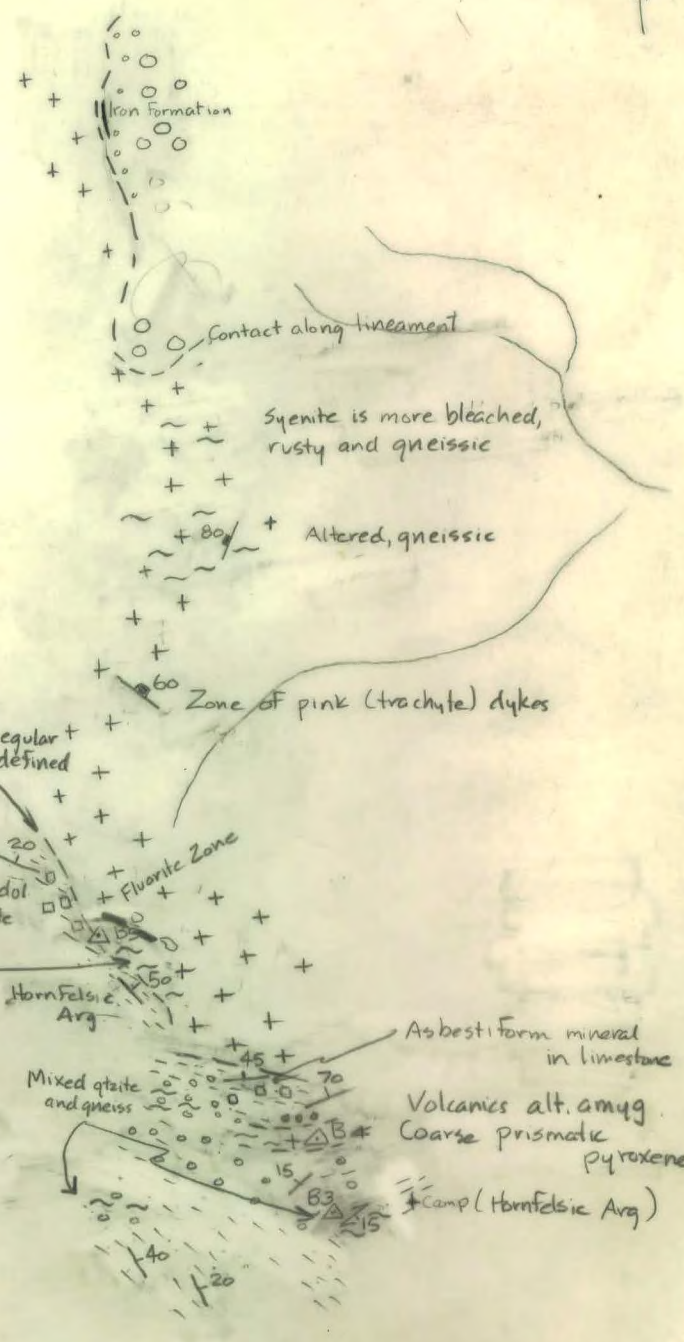 Iron Formation
Contact along lineament
Syenite is more bleached,
rusty and gneissic
80
Altered, gneissic
60
Zone of pink (trachyte) dykes
egular
defined
20
dol
te
Fluorite Zone
50
Hornfelsic
Arg
Asbestiform mineral
in limestone
45
70
Mixed qtzite
and gneiss
Volcanics alt. amyg
Coarse prismatic
pyroxene
B4
15
B3
15
Camp (Hornfelsic Arg)
40
20